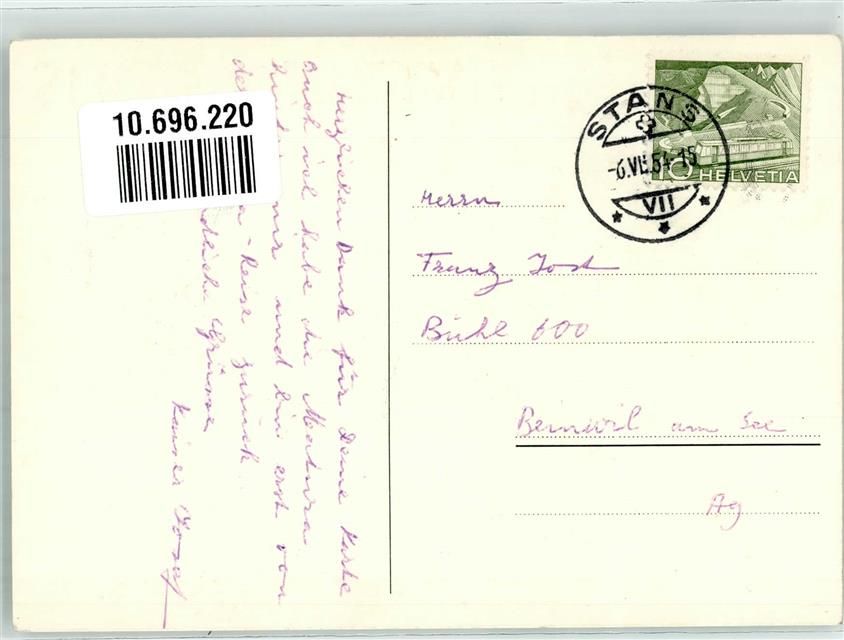 10.696.220
STANS
-6.VII.54-15
VII
10 HELVETIA
Herrn
Franz Jost
Bühl 600
Beinwil am See
Ag
Herzlichen Dank für Deine Karte
Auch ich habe die Matura
hinter mir und bin erst von
de - Reise zurück.
Grüsse
Kaiser Josef